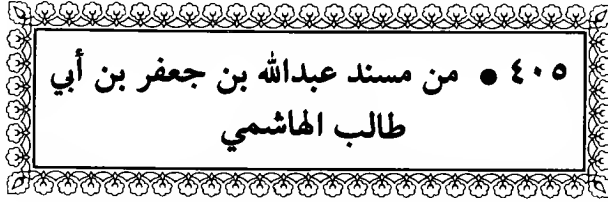 ٤٠٥ ● من مسند عبدالله بن جعفر بن أبي
طالب الهاشمي